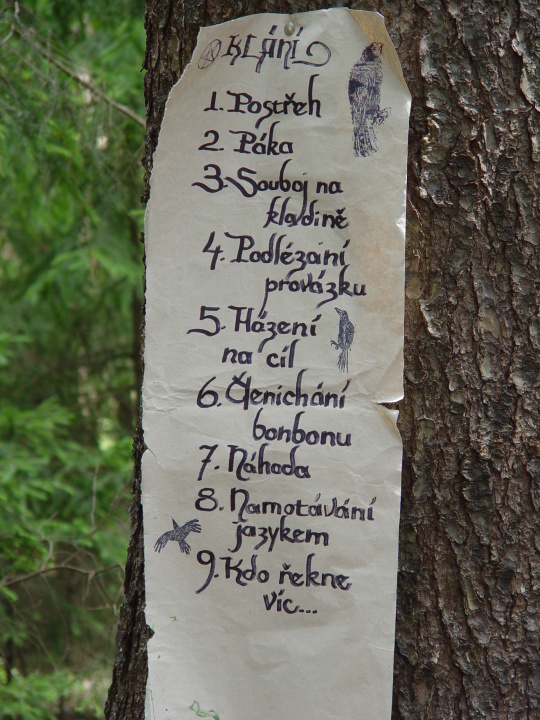 KLÁNÍ
1. Postřeh
2. Páka
3. Souboj na
kladině
4. Podlézání
provázku
5. Házení
na cíl
6. Čenichání
bonbonu
7. Náhoda
8. Namotávání
jazykem
9. Kdo řekne
víc...